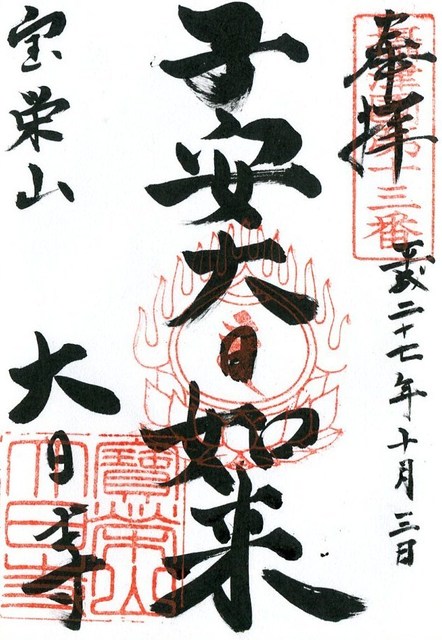 奉拝
平成二十七年十月三日
子安大日如来
宝栄山
大日寺
寶榮山
大日寺